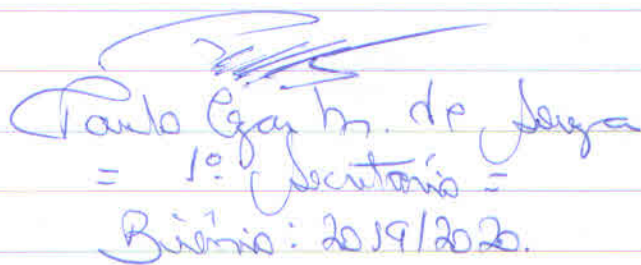 Paulo Cezar M. de Souza
= 1º Secretário =
Biênio: 2019/2020.